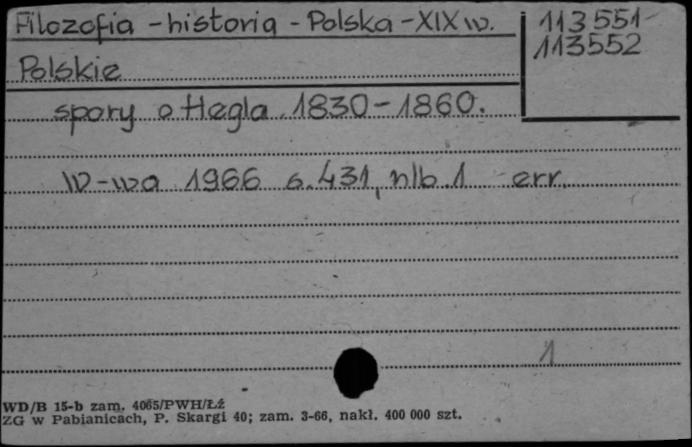 Filozofia - historia - Polska - XIX w.
113551-
113552
Polskie
spory o Hegla 1830-1860.
W-wa 1966 s. 431, nlb. 1 err.
1
WD/B 15-b zam. 4065/PWH/Łź
ZG w Pabianicach, P. Skargi 40; zam. 3-66, nakł. 400 000 szt.